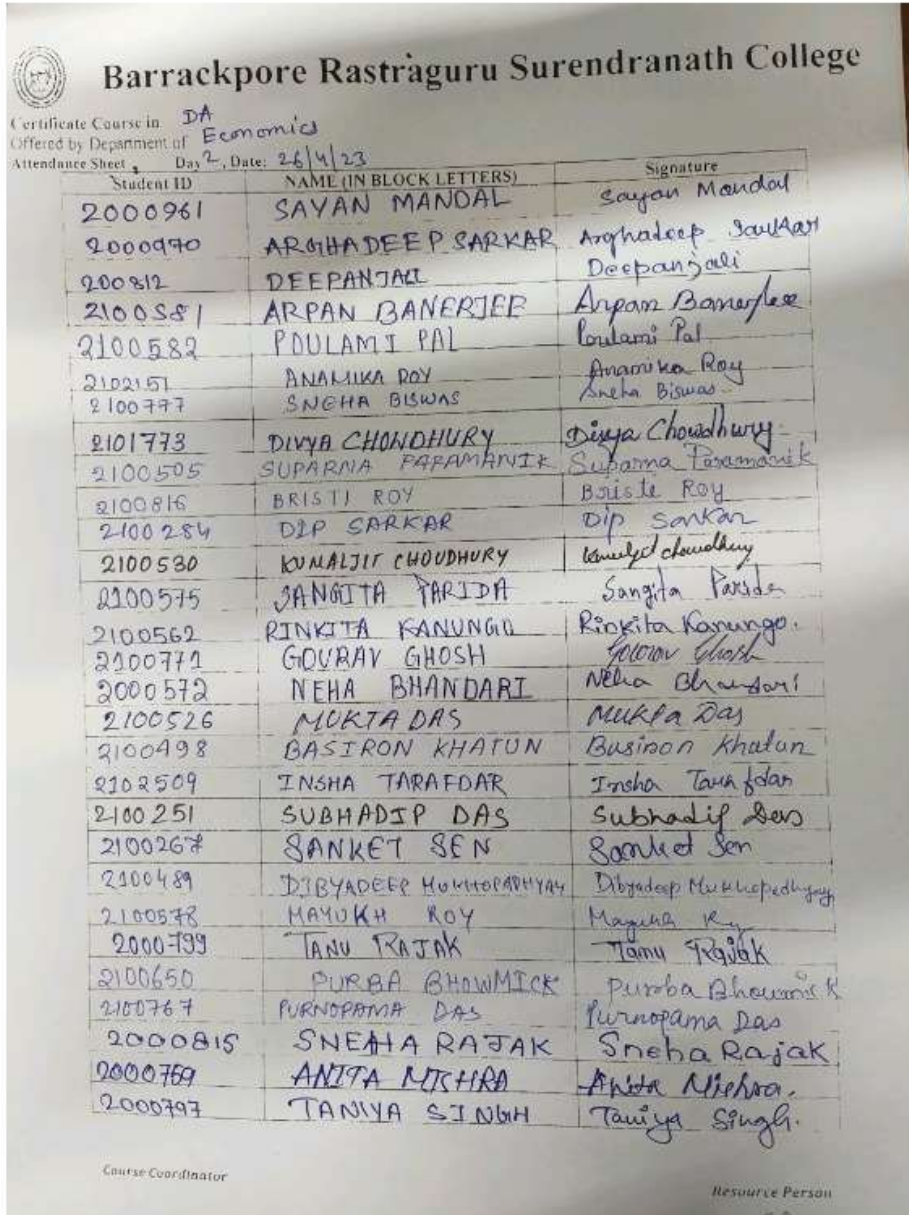 Barrackpore Rastraguru Surendranath College
Certificate Course in DA
Offered by Department of Economics
Attendance Sheet, Day 2, Date: 26/4/23
Student ID NAME (IN BLOCK LETTERS) Signature
2000961 SAYAN MANDAL Sayan Mandal
2000970 ARGHADEEP SARKAR Arghadeep Sarkar
200812 DEEPANJALI Deepanjali
2100581 ARPAN BANERJEE Arpan Banerjee
2100582 POULAMI PAL Poulami Pal
2102151 ANAMIKA ROY Anamika Roy
2100777 SNEHA BISWAS Sneha Biswas
2101773 DIVYA CHOWDHURY Divya Chowdhury
2100505 SUPARNA PARAMANIK Suparna Paramanik
2100816 BRISTI ROY Bristi Roy
2100284 DIP SARKAR Dip Sarkar
2100530 KUNALJIT CHOUDHURY Kunaljit Choudhury
2100575 SANGITA PARIDA Sangita Parida
2100562 RINKITA KANUNGO Rinkita Kanungo.
2100771 GOURAV GHOSH Gourav Ghosh
2000572 NEHA BHANDARI Neha Bhandari
2100526 MUKTA DAS Mukta Das
2100498 BASIRON KHATUN Basiron Khatun
2102509 INSHA TARAFDAR Insha Tarafdar
2100251 SUBHADIP DAS Subhadip Das
2100267 SANKET SEN Sanket Sen
2100489 DIBYADEEP MUKHOPADHYAY Dibyadeep Mukhopadhyay
2100578 MAYUKH ROY Mayukh Roy
2000799 TANU RAJAK Tanu Rajak
2100650 PURBA BHOWMICK Purba Bhowmick
2100767 PURNOPAMA DAS Purnopama Das
2000815 SNEHA RAJAK Sneha Rajak
2000769 ANITA MISHRA Anita Mishra.
2000797 TANIYA SINGH Taniya Singh.
Course Coordinator
Resource Person